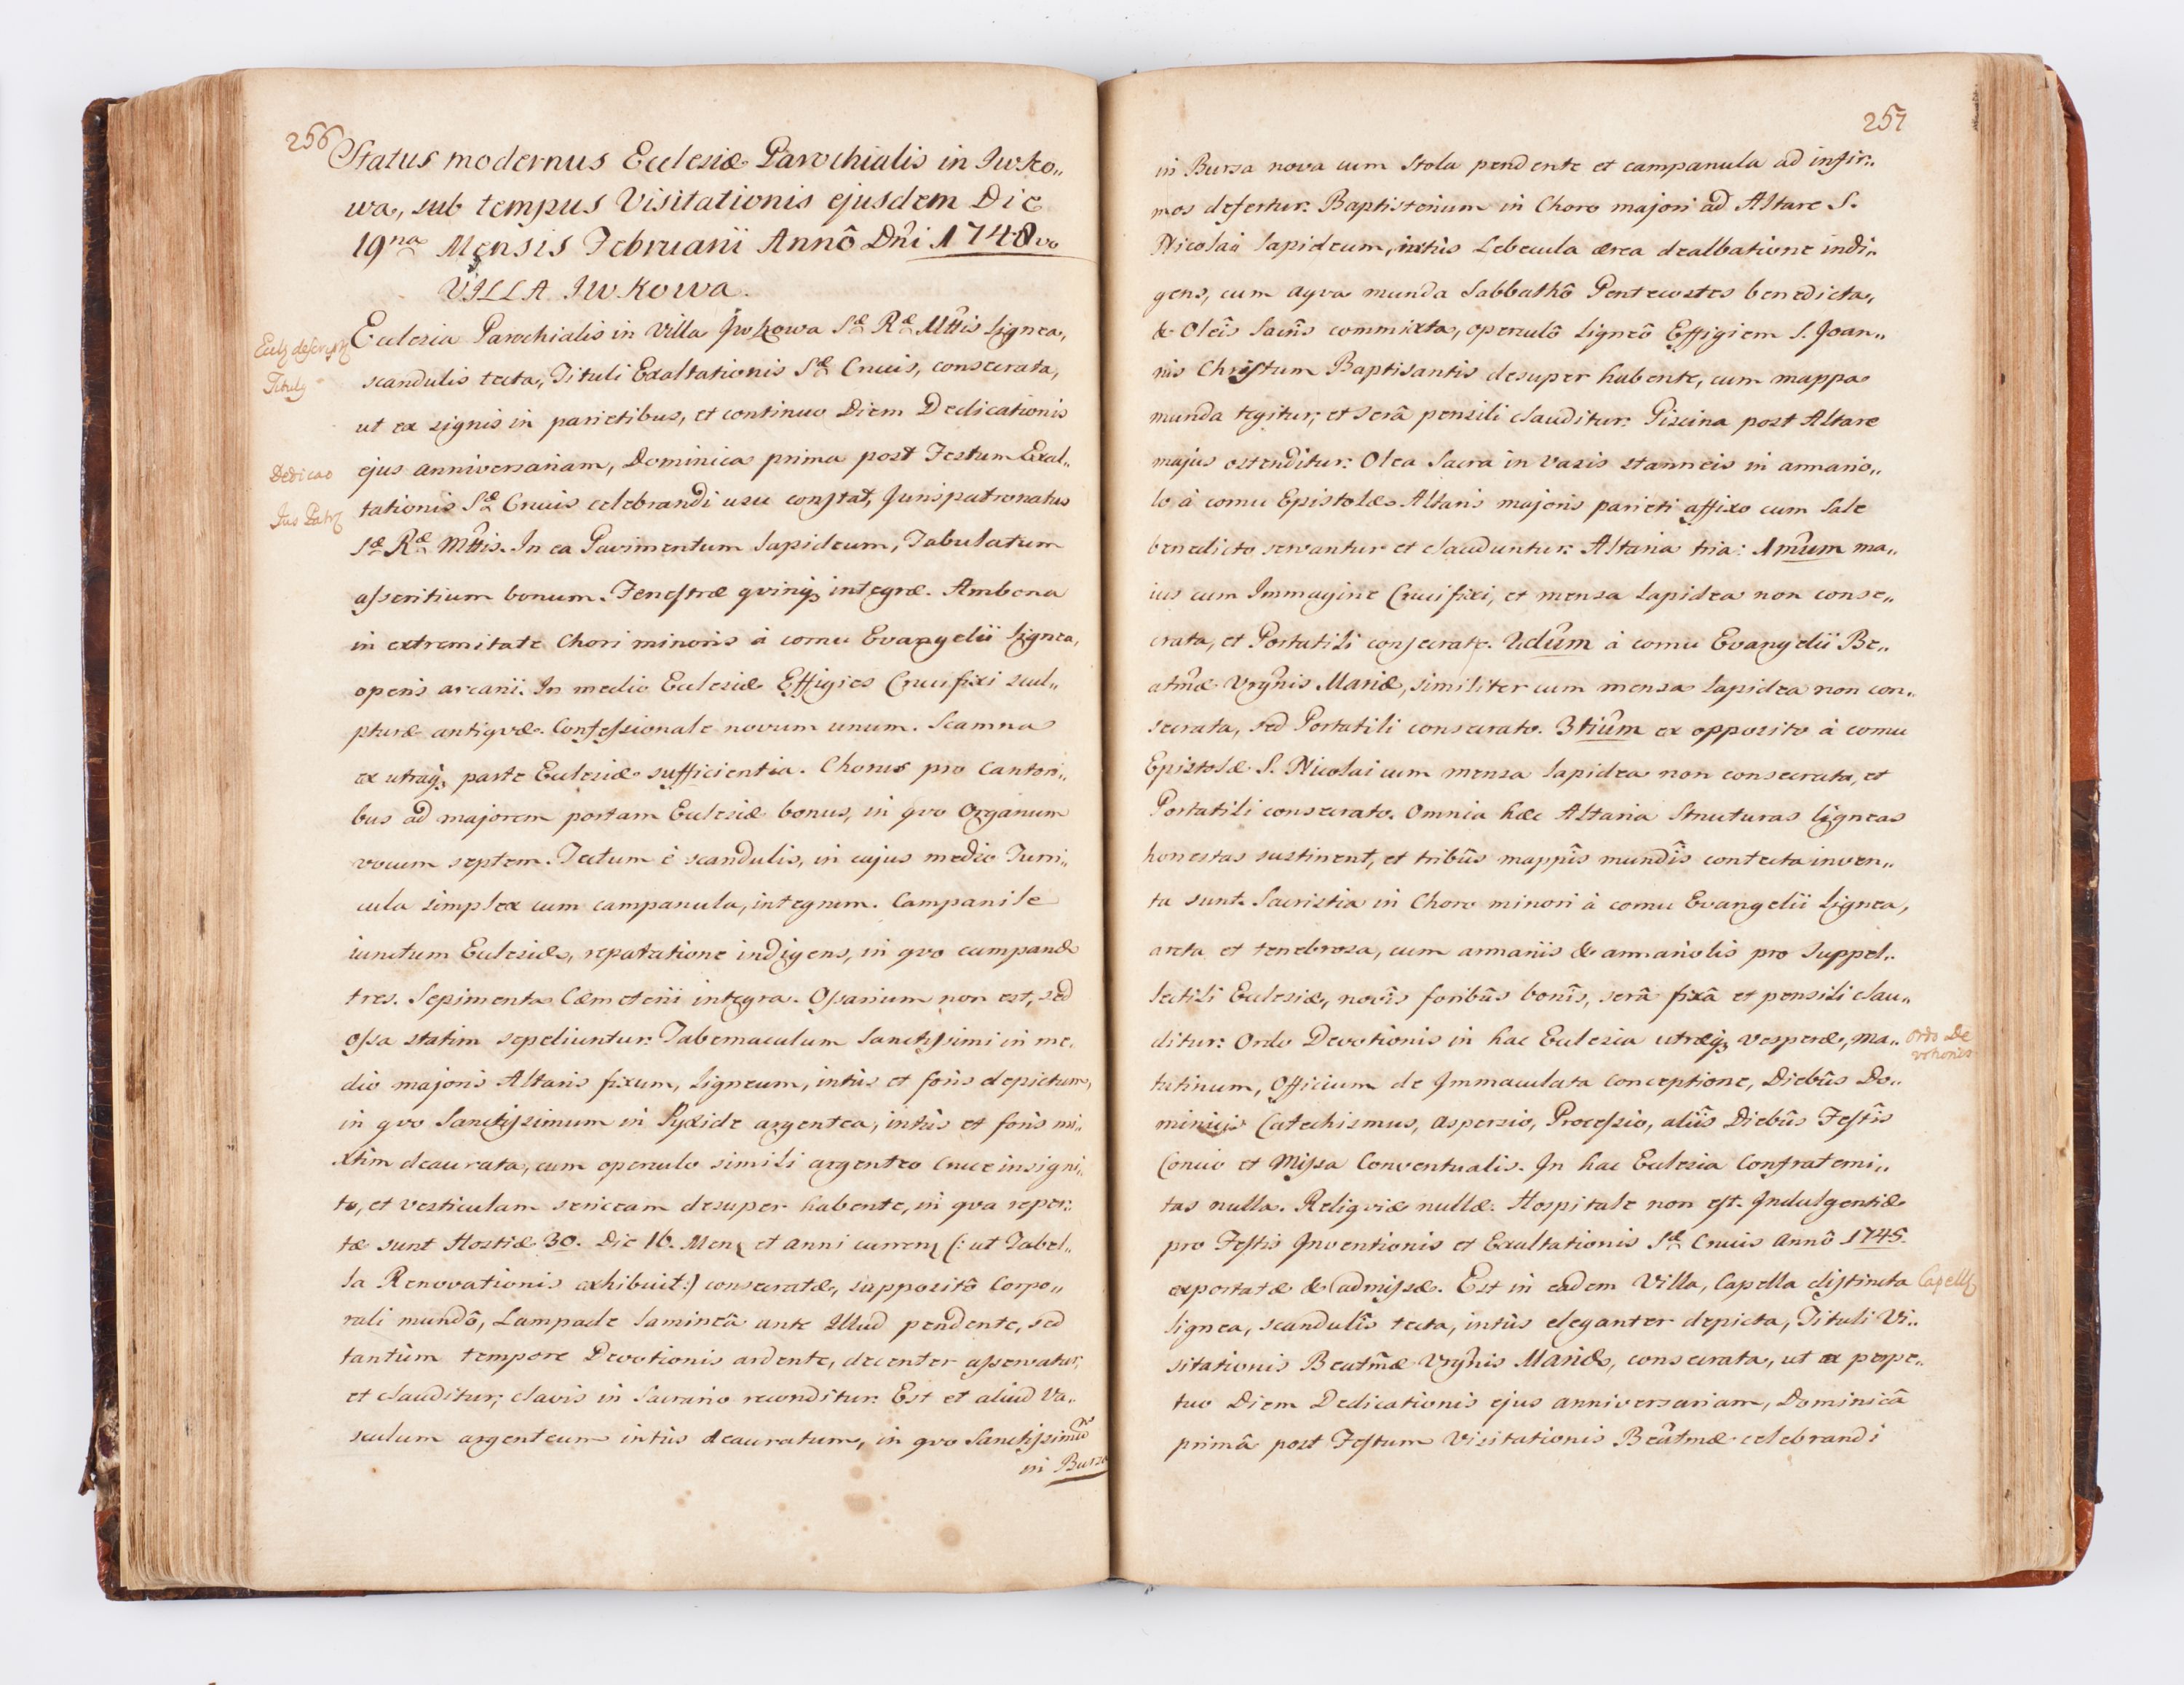 256
Status modernus Ecclesiæ Parochialis in Iwko„
wa, sub tempus Visitationis ejusdem Die
19na Mensis Februarii Annô Dni 1748vo
VILLA IWKOWA.
Ecclesia Parochialis in Villa Iwkowa Sæ Ræ Mttis lignea,
scandulis tecta, Tituli Exaltationis Sæ Crucis, consecrata,
Titulq
ut ex signis in parietibus, et continuo Diem Dedicationis
ejus anniversariam, Dominica prima post Festum Exal„
Dedicao
tationis Sæ Crucis celebrandi usu constat, Jurispatronatus
Jus Patr
Sæ Ræ Mttis. In ea Pavimentum lapideum, Tabulatum
asseritium bonum. Fenestræ qvinq3 integræ. Ambona
in extremitate Chori minoris à cornu Evangelii lignea,
operis arcarii. In medio Ecclesiæ Effigies Crucifixi scul„
pturæ antiqvæ. Confessionale novum unum. Scamna
ex utraq3 parte Ecclesiæ sufficientia. Chorus pro Cantori„
bus ad majorem portam Ecclesiæ bonus, in qvo Organum
vocum septem. Tectum è scandulis, in cujus medio Turri„
cula simplex cum campanula, integrum. Campanile
iunctum Ecclesiæ, reparatione indigens, in qvo campanæ
tres. Sepimenta Cæmeterii integra. Ossarium non est, sed
ossa statim sepeliuntur. Tabernaculum Sanctissimi in me„
dio majoris Altaris fixum, ligneum, intùs et foris depictum,
in qvo Sanctissimum in Pyxide argentea, intùs et foris mi„
xtim deaurata, cum operculo simili argenteo Cruce insigni„
to, et vesticulam sericeam desuper habente, in qva reper„
tæ sunt Hostiæ 30. Die 16. Mens et anni curren (: ut Tabel„
la Renovationis exhibuit :) consecratæ, supposito Corpo„
rali mundô, Lampade lamineâ ante Illud pendente, sed
tantùm tempore Devotionis ardente, decenter asservatur,
et clauditur; clavis in Sacrario reconditur. Est et aliud Va„
sculum argenteum intùs deauratum, in qvo Sanctissimũ
in Bursa
257
in Bursa nova cum Stola pendente et campanula ad infir„
mos defertur. Baptisterium in Choro majori ad Altare S.
Nicolai lapideum, intùs Lebecula ærea dealbatione indi„
gens, cum aqva munda Sabbathô Pentecostes benedicta,
& Oleis Sacris commixta, operculô ligneô Effigiem S. Joan„
nis Christum Baptisantis desuper habente, cum mappa
munda tegitur, et serâ pensili clauditur. Piscina post Altare
majus ostenditur. Olea Sacra in vasis stanneis in armario„
lo à cornu Epistolæ Altaris majoris parieti affixo cum Sale
benedicto servantur et clauduntur. Altaria tria: 1mum ma„
ius cum Immagine Crucifixi, et mensa lapidea non conse„
crata, et Portatili consecrato. 2dum à cornu Evangelii Be„
atmæ Vrgnis Mariæ, similiter cum mensa lapidea non con„
secrata, sed Portatili consecrato. 3tium ex opposito à cornu
Epistolæ S. Nicolai cum mensa lapidea non consecrata, et
Portatili consecrato. Omnia hæc Altaria Structuras ligneas
honestas sustinent, et tribus mappis mundis contecta inven„
ta sunt. Sacristia in Choro minori à cornu Evangelii lignea,
arcta et tenebrosa, cum armariis & armariolis pro Suppel„
lectili Ecclesiæ, novis foribus bonis, serâ fixâ et pensili clau„
ditur. Ordo Devotionis in hac Ecclesia utræq3 Vesperæ, Ma„
Ordo De
votionis
tutinum, Officium de Immaculata Conceptione, Diebus Do„
minicis Catechismus, aspersio, Processio, aliis Diebus Festis
Concio et Missa Conventualis. In hac Ecclesia Confraterni„
tas nulla. Reliqviæ nullæ. Hospitale non est. Indulgentiæ
pro Festis Inventionis et Exaltationis Sæ Crucis Annô 1745.
exportatæ & admissæ. Est in eadem Villa, Capella distincta
Capella
lignea, scandulis tecta, intùs eleganter depicta, Tituli Vi„
sitationis Beatmæ Vrgnis Mariæ, consecrata, ut ex perpe„
tuo Diem Dedicationis ejus anniversariam, Dominicâ
primâ post Festum Visitationis Beatmæ celebrandi